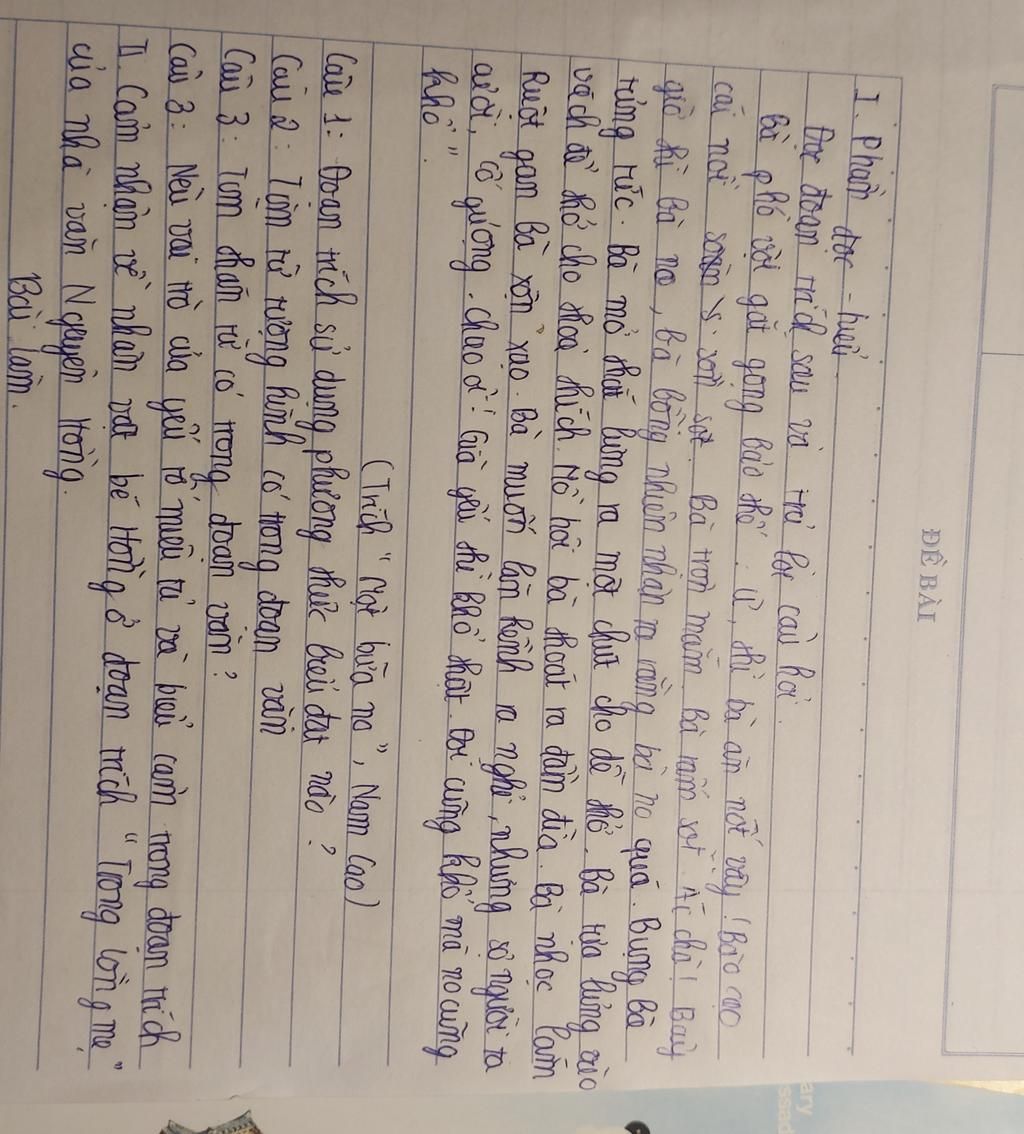 ĐỀ BÀI
I. Phần đọc - hiểu
Đọc đoạn trích sau và trả lời câu hỏi.
Bà phó vội gắt gọng bảo thế. Ừ, thì bà ăn nốt vậy! Bào cạo
cái nồi sồn sột. Bà trộn mắm. Bà rấm sột. Ắc chà! Bấy
giờ thì bà no, bà bỗng nhiên nhận ra rằng bà no quá. Bụng bà
rưng rức. Bà mở thắt lưng ra một chút cho dễ thở. Bà tựa lưng vào
vách để thở cho thoả thích. Mồ hôi bà thoát ra đầm đìa. Bà nhọc lắm
Ruột gan bà xộn xạo. Bà muốn lăn kềnh ra nghỉ, nhưng sợ người ta
cười, cố gượng. Chao ôi! Già yếu thì khổ thật. Đói cũng khổ mà no cũng
khổ".
(Trích "Một bữa no", Nam Cao)
Câu 1: Đoạn trích sử dụng phương thức biểu đạt nào?
Câu 2: Tìm từ tượng hình có trong đoạn văn
Câu 3: Tìm thán từ có trong đoạn văn?
Câu 3: Nêu vai trò của yếu tố miêu tả và biểu cảm trong đoạn trích
II. Cảm nhận về nhân vật bé Hồng ở đoạn trích "Trong lòng mẹ"
của nhà văn Nguyên Hồng.
Bài làm.
ary
ssad